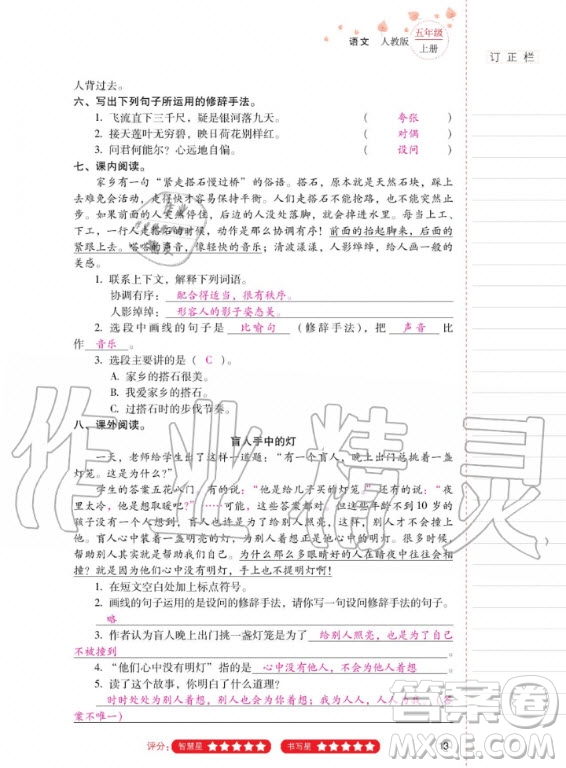 语文 人教版 五年级上册
订正栏
人背过去。
六、写出下列句子所运用的修辞手法。
1. 飞流直下三千尺，疑是银河落九天。 （ 夸张 ）
2. 接天莲叶无穷碧，映日荷花别样红。 （ 对偶 ）
3. 问君何能尔？心远地自偏。 （ 设问 ）
七、课内阅读。
家乡有一句“紧走搭石慢过桥”的俗语。搭石，原本就是天然石块，踩上
去难免会活动，走得快才容易保持平衡。人们走搭石不能抢路，也不能突然止
步。如果前面的人突然停住，后边的人没处落脚，就会掉进水里。每当上工、
下工，一行人走搭石的时候，动作是那么协调有序！前面的抬起脚来，后面的
紧跟上去。嗒嗒的声音，像轻快的音乐；清波漾漾，人影绰绰，给人画一般的
美感。
1. 联系上下文，解释下列词语。
协调有序： 配合得适当，很有秩序。
人影绰绰： 形容人的影子姿态美。
2. 选段中画线的句子是 比喻句 （修辞手法），把 声音 比
作 音乐 。
3. 选段主要讲的是（ C ）。
A. 家乡的搭石很美。
B. 我爱家乡的搭石。
C. 过搭石时的步伐节奏。
八、课外阅读。
盲人手中的灯
一天，老师给学生出了这样一道题：“有一个盲人，晚上出门总挑着一盏
灯笼。这是为什么？”
学生的答案五花八门 有的说：“他是给儿子买的灯笼” 还有的说：“夜
里太冷，他是想取暖吧？”……可是，
孩子没有一个人认为，盲人打灯笼是为了给别人照亮，
盲人心中装着一盏明灯，为别人着想，给别人照亮，
帮助别人其实也是帮助我们自己。为什么那么多眼睛好的人在暗夜中往往会相
撞？就是因为他们心中没有明灯，手上也不提明灯啊！
1. 在短文空白处加上标点符号。
2. 画线的句子运用的是设问的修辞手法，请你写一句运用设问修辞手法的句子。
略
3. 作者认为盲人晚上出门挑一盏灯笼是为了 给别人照亮，也是为了自己
不被撞到 。
4. “他们心中没有明灯”指的是 心中没有别人，不为别人着想 。
5. 读了这个故事，你明白了什么道理？
时时处处为别人着想，别人也会为我着想，我为人人，人人为我。（答
案不唯一）
评分： 智慧星 ★★★★★ 书写星 ★★★★★
13
作业精灵
答案卷